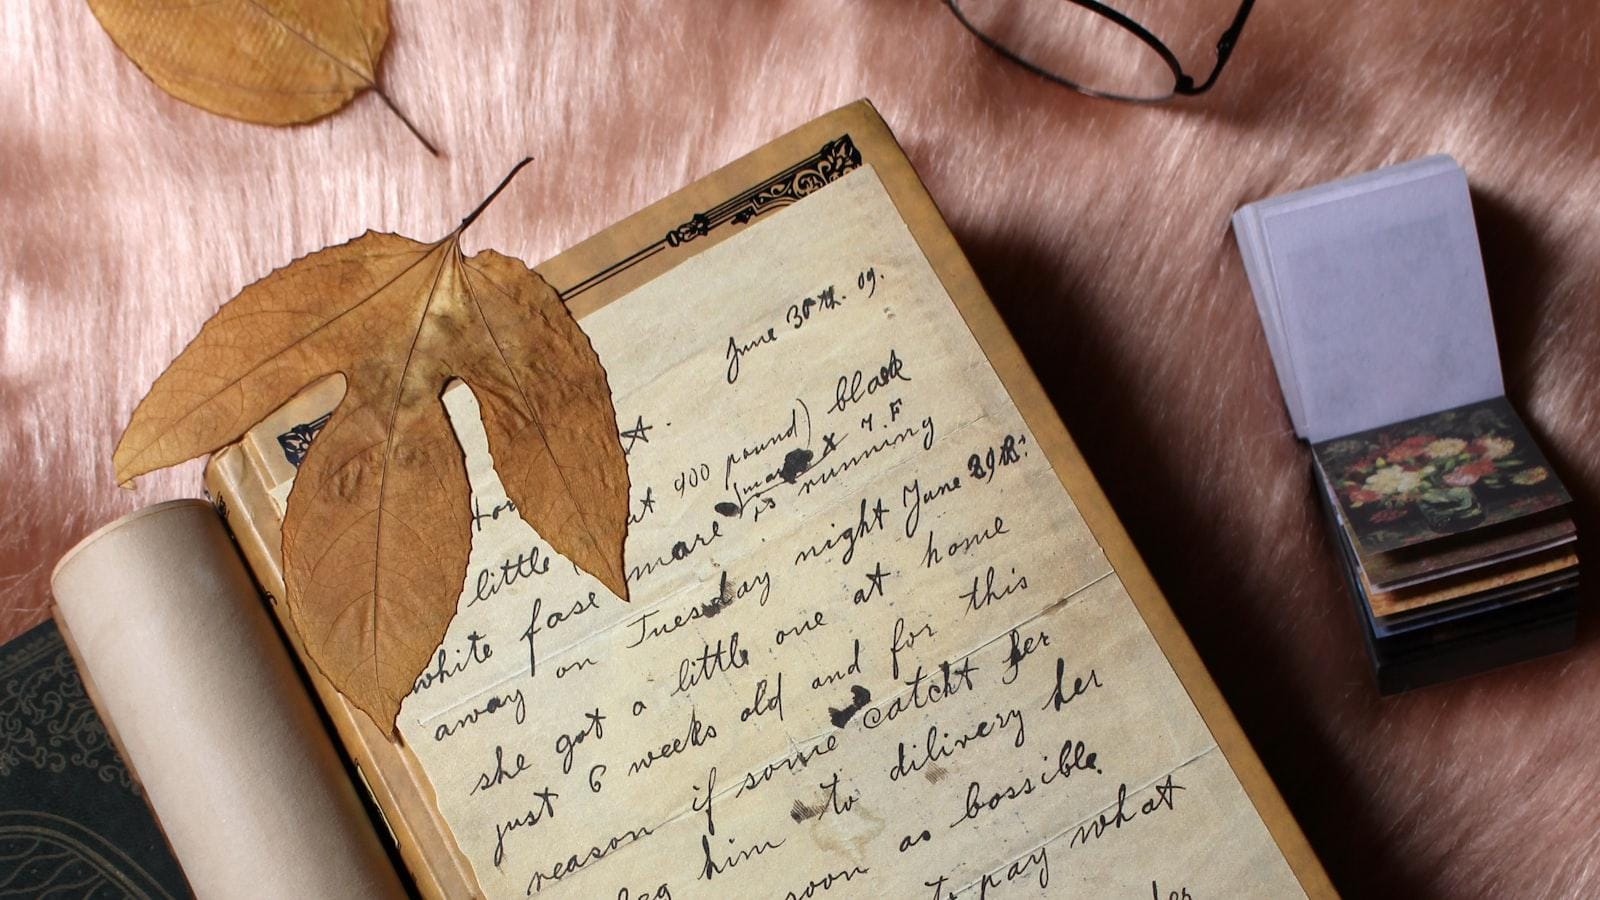 June 30th. 09.
400 pound) black
little mare smart x 4. F
white fase is running
away on Tuesday night June 29th:
she got a little one at home
just 6 weeks old and for this
reason if some catcht her
beg him to dilivery her
soon as bossible.
to pay what